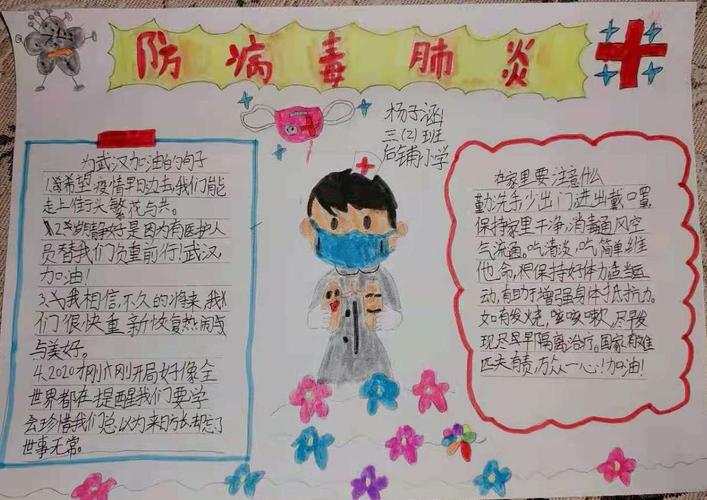 防病毒肺炎
杨子涵
三(2)班
后铺小学
为武汉加油的句子
希望疫情早日过去我们能
走上街头繁花与共。
2.岁月静好是因为有医护人
员替我们负重前行!武汉
加油!
3.我相信,不久的将来,我
们很快重新恢复热闹
与美好。
4.2020才刚刚开局好像全
世界都在提醒我们要学
会珍惜我们总以为来日方长却忘了
世事无常。
在家里要注意什么
勤洗手少出门进出戴口罩
保持家里干净,消毒通风空
气流通。吃清淡,吃简单维
他命,保持好体力适当运
动,有助于增强身体抵抗力。
如有发烧,咳嗽,尽早发
现尽早隔离治疗。国家有难
匹夫有责,万众一心!加油!